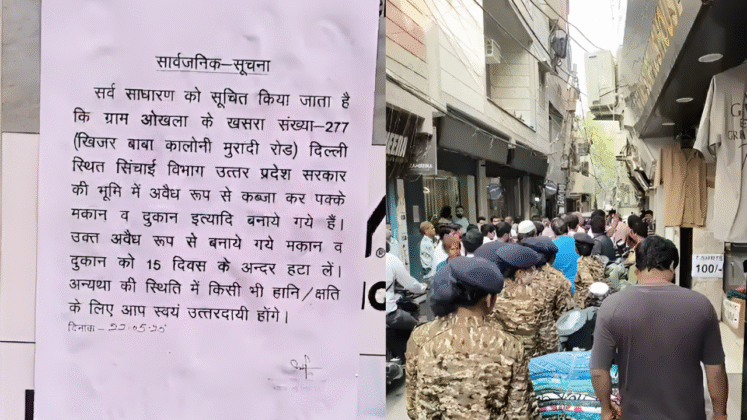 सार्वजनिक–सूचना
सर्व साधारण को सूचित किया जाता है
कि ग्राम ओखला के खसरा संख्या–277
(खिजर बाबा कालोनी मुरादी रोड) दिल्ली
स्थित सिंचाई विभाग उत्तर प्रदेश सरकार
की भूमि में अवैध रूप से कब्जा कर पक्के
मकान व दुकान इत्यादि बनाये गये हैं।
उक्त अवैध रूप से बनाये गये मकान व
दुकान को 15 दिवस के अन्दर हटा लें।
अन्यथा की स्थिति में किसी भी हानि/क्षति
के लिए आप स्वयं उत्तरदायी होंगे।
दिनांक–
T-SHIRTS
100/-